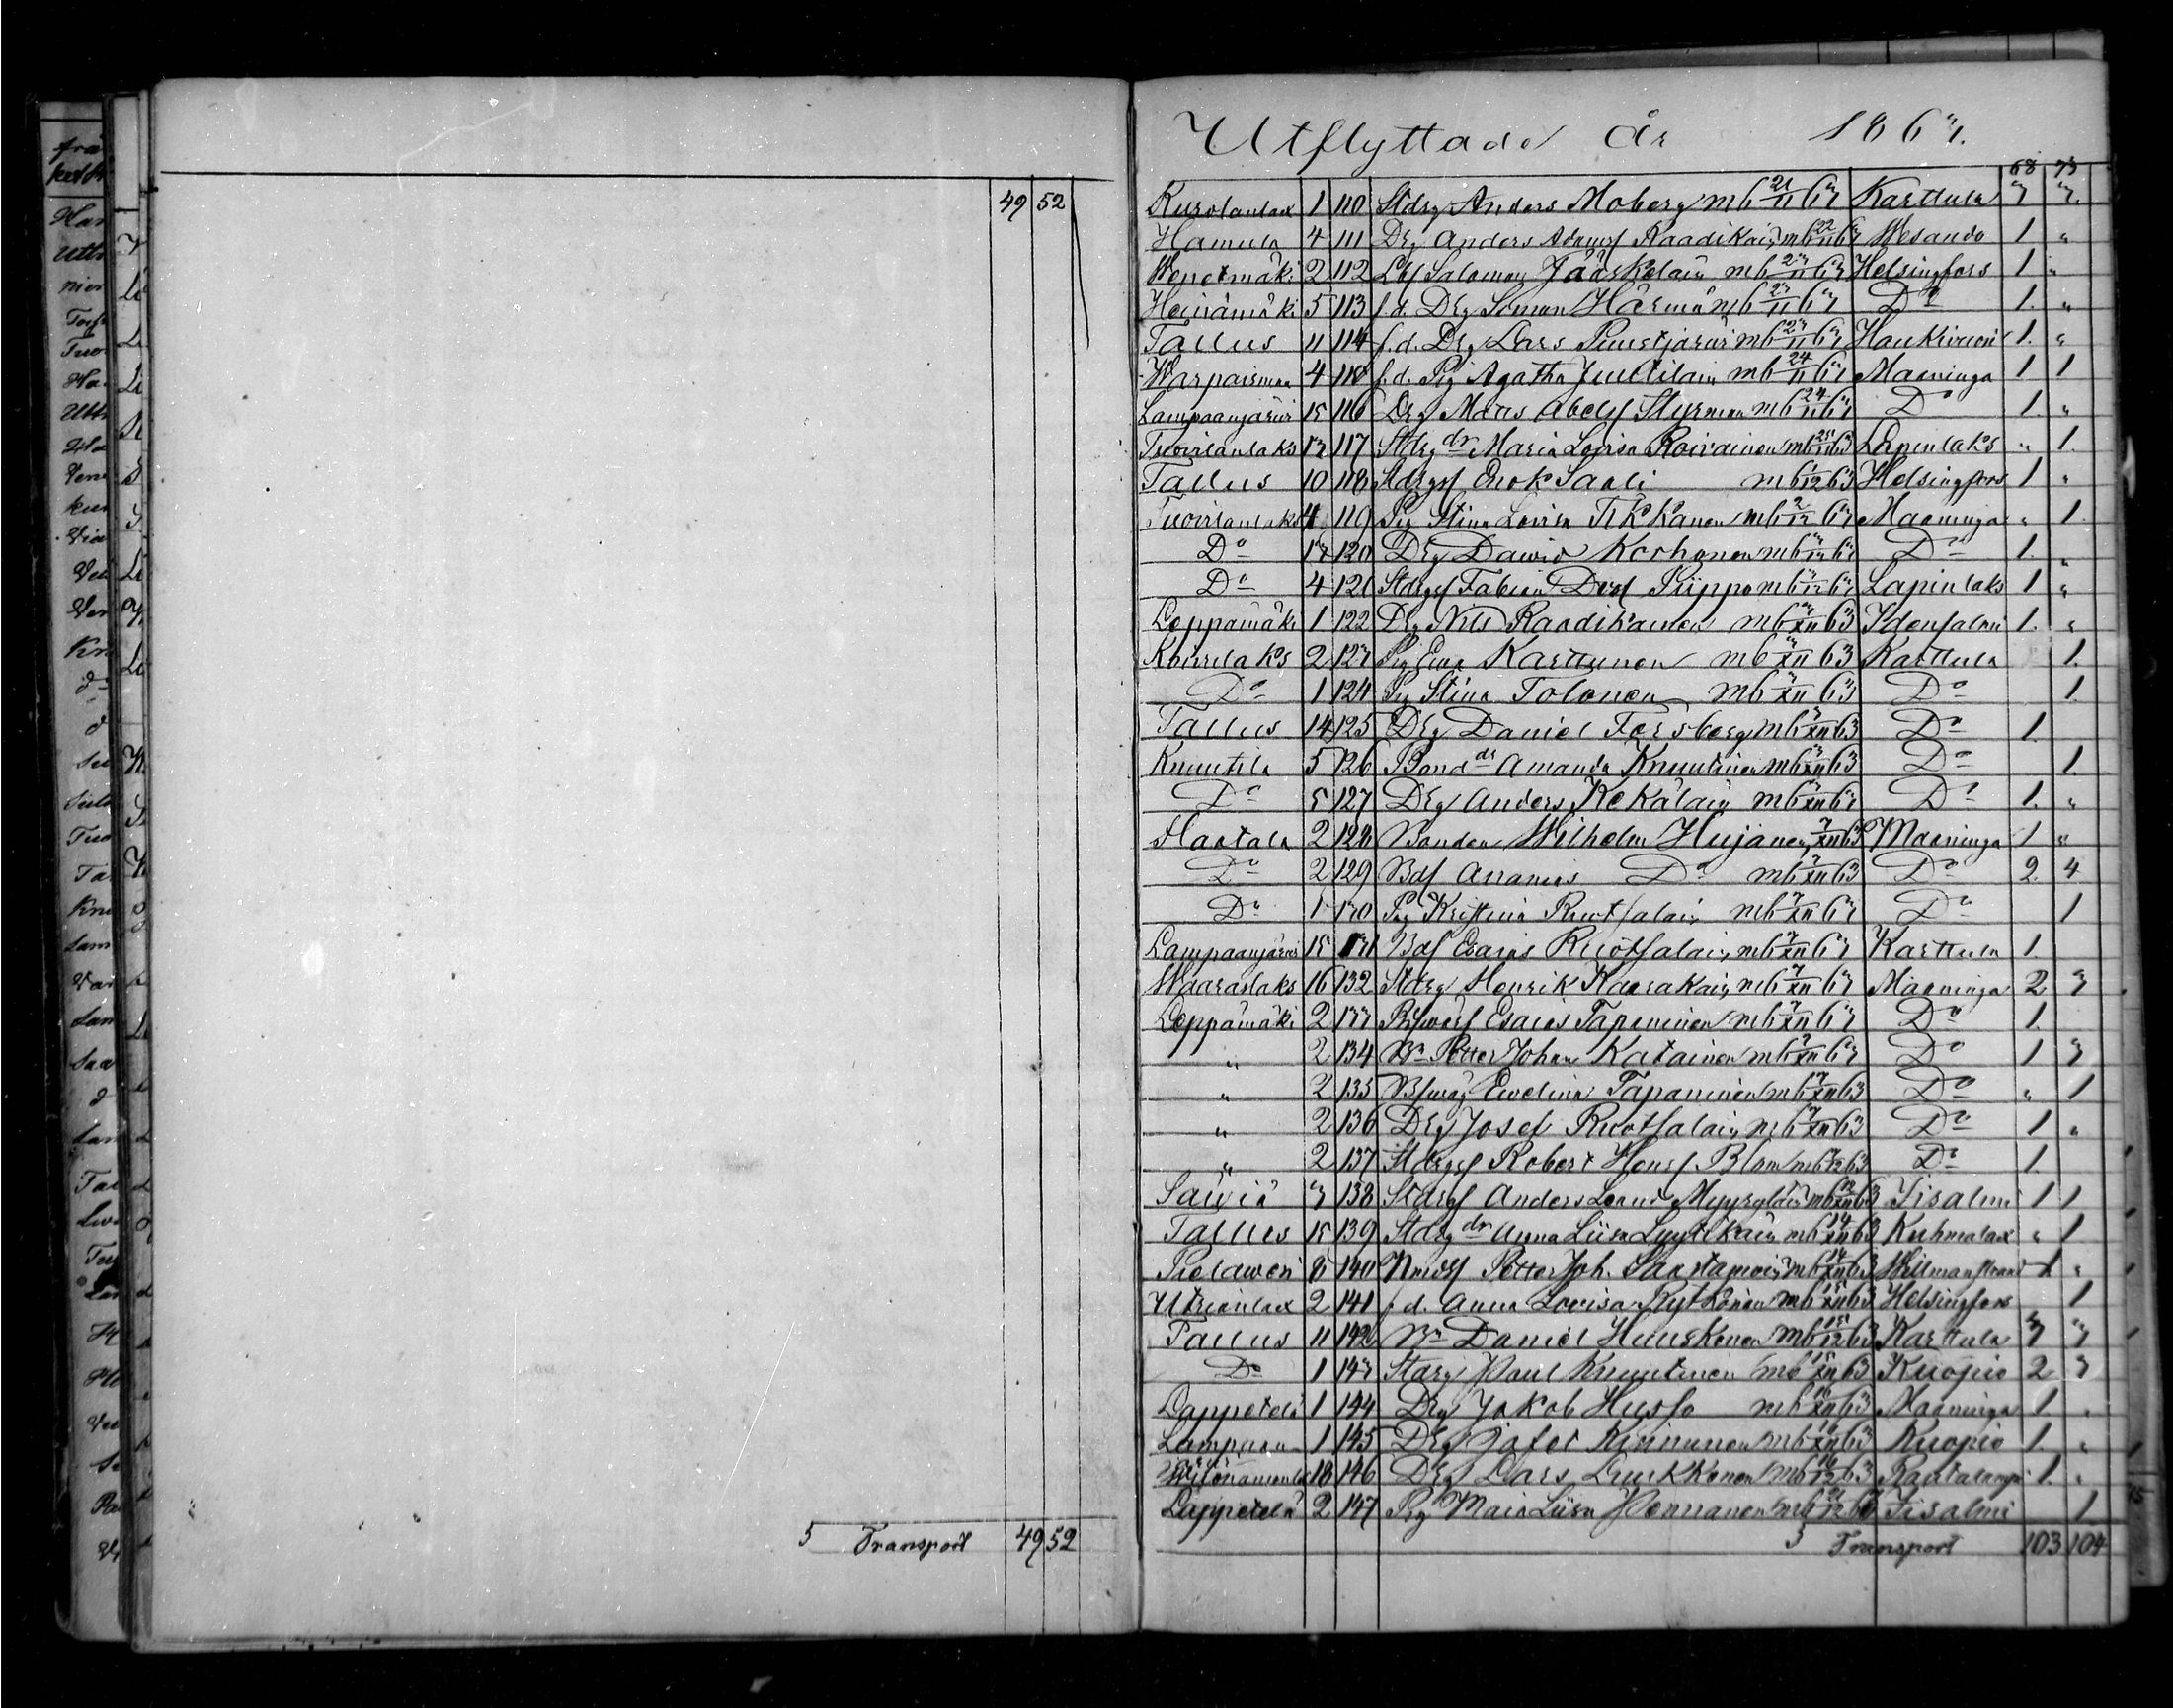 49 52
5 Transport 49 52
Utflyttade år 1863.
68 73
Kurolanlax 1 110 Stdrg Anders Moberg mb 21/11 63 Karttula 3 3.
Hamula 4 111 Drg Anders Adamsf Raadikain mb 22/11 63 Wesando 1. "
Wenetmäki 2 112 Lbf Salomon Jääskelain mb 23/11 63 Helsingfors 1 "
Heinämäki 5 113 f.d. Drg Simon Härmä mb 23/11 63 Do 1. "
Tallus 11 114 f.d. Drg Lars Puustjärvi mb 23/11 63 Haukivuori 1. "
Warpaismaa 4 115 f.d. Pig Agatha Juutilain mb 24/11 63 Maaninga 1 1
Lampaanjärvi 15 116 Drg Mats Abelsf Styrman mb 24/11 63 Do 1. "
Tuovilanlaks 13 117 Stdrg dr Maria Lovisa Roivainen mb 25/11 63 Lapinlaks " 1.
Tallus 10 118 Stdrgsf Enok Saali mb 1/12 63 Helsingfors 1 "
Tuovilanlaks 4 119 Pig Stina Lovisa Tikkanen mb 2/12 63 Maaninga " 1.
Do 13 120 Drg Dawid Korhonen mb 3/12 63 Do 1. "
Do 4 121 Stdrgsf Fabian Davidsf Piippo mb 3/12 63 Lapinlaks 1 "
Leppämäki 1 122 Drg Nils Raadikainen mb 3/XII 63 Idensalmi 1. "
Koivulaks 2 123 Pig Eva Karttunen mb 3/XII 63 Karttula 1.
Do 1 124 Pig Stina Tolonen mb 3/XII 63 Do 1.
Tallus 14 125 Drg Daniel Forsberg mb 3/XII 63 Do 1.
Knuutila 5 126 Bond dr Amanda Knuutinen mb 3/XII 63 Do 1.
Do 5 127 Drg Anders Kekäläin mb 3/XII 63 Do 1. "
Haatala 2 128 Bonden Wilhelm Hujanen 7/XII 63 Maaninga 1 "
Do 2 129 Bdf Ananias Do mb 7/XII 63 Do 2. 4
Do 1 130 Pig Kristina Ruotsalain mb 7/XII 63 Do 1
Lampaanjärvi 15 131 Bdf Esaias Ruotsalain mb 7/XII 63 Karttula 1.
Waaraslaks 16 132 Stdrg Henrik Kaarakain mb 7/XII 63 Maaninga 2 3
Leppämäki 2 133 Esaias Tapaninen mb 7/XII 63 Do 1.
" 2 134 Bn Petter Johan Katainen mb 7/XII 63 Do 1 3
" 2 135 Ewelina Tapaninen mb 7/XII 63 Do " 1
" 2 136 Drg Josef Ruotsalain mb 7/XII 63 Do 1 "
" 2 137 Stdrgsf Robert Hensf Blom mb 7/12 63 Do 1
Säviä 3 138 Stdrgsf Anders Myyryläin mb 12/XII 63 Iisalmi 1 1
Tallus 15 139 Stdrg dr Anna Liisa Lyytikäin mb 14/XII 63 Kuhmalax " 1
Pielavesi 8 140 Petter Joh. Saastamoin mb 14/XII 63 Willmanstrand 1 "
Utrianlax 2 141 f.d. Anna Lovisa Rytkönen mb 15/XII 63 Helsingfors 1
Tallus 11 142 Bn Daniel Huuskonen mb 15/12 63 Karttula 3 3
Do 1 143 Stdrg Paul Knuutinen mb 15/XII 63 Kuopio 2 3
Lappetelä 1 144 Drg Jakob Husso mb 16/XII 63 Maaninga 1 "
Lampaan- 1 145 Drg Jafet Kinnunen mb 16/XII 63 Kuopio 1. "
18 146 Drg Lars Luukkonen mb 16/12 63 Rautalampi 1. "
Lappetelä 2 147 Pig Maia Liisa Pennanen mb 21/12 63 Iisalmi 1
5 Transport 103 104